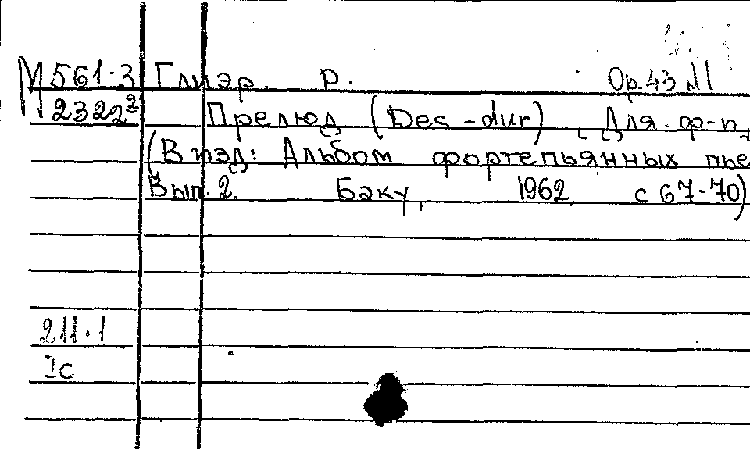 М 561-3 Глиэр. Р. Ор. 43 №1
2322² Прелюд (Des-dur). [Для ф-п.]
(В изд: Альбом фортепьянных пье
Вып. 2. Баку, 1962, с 67-70)
211.1
Ic